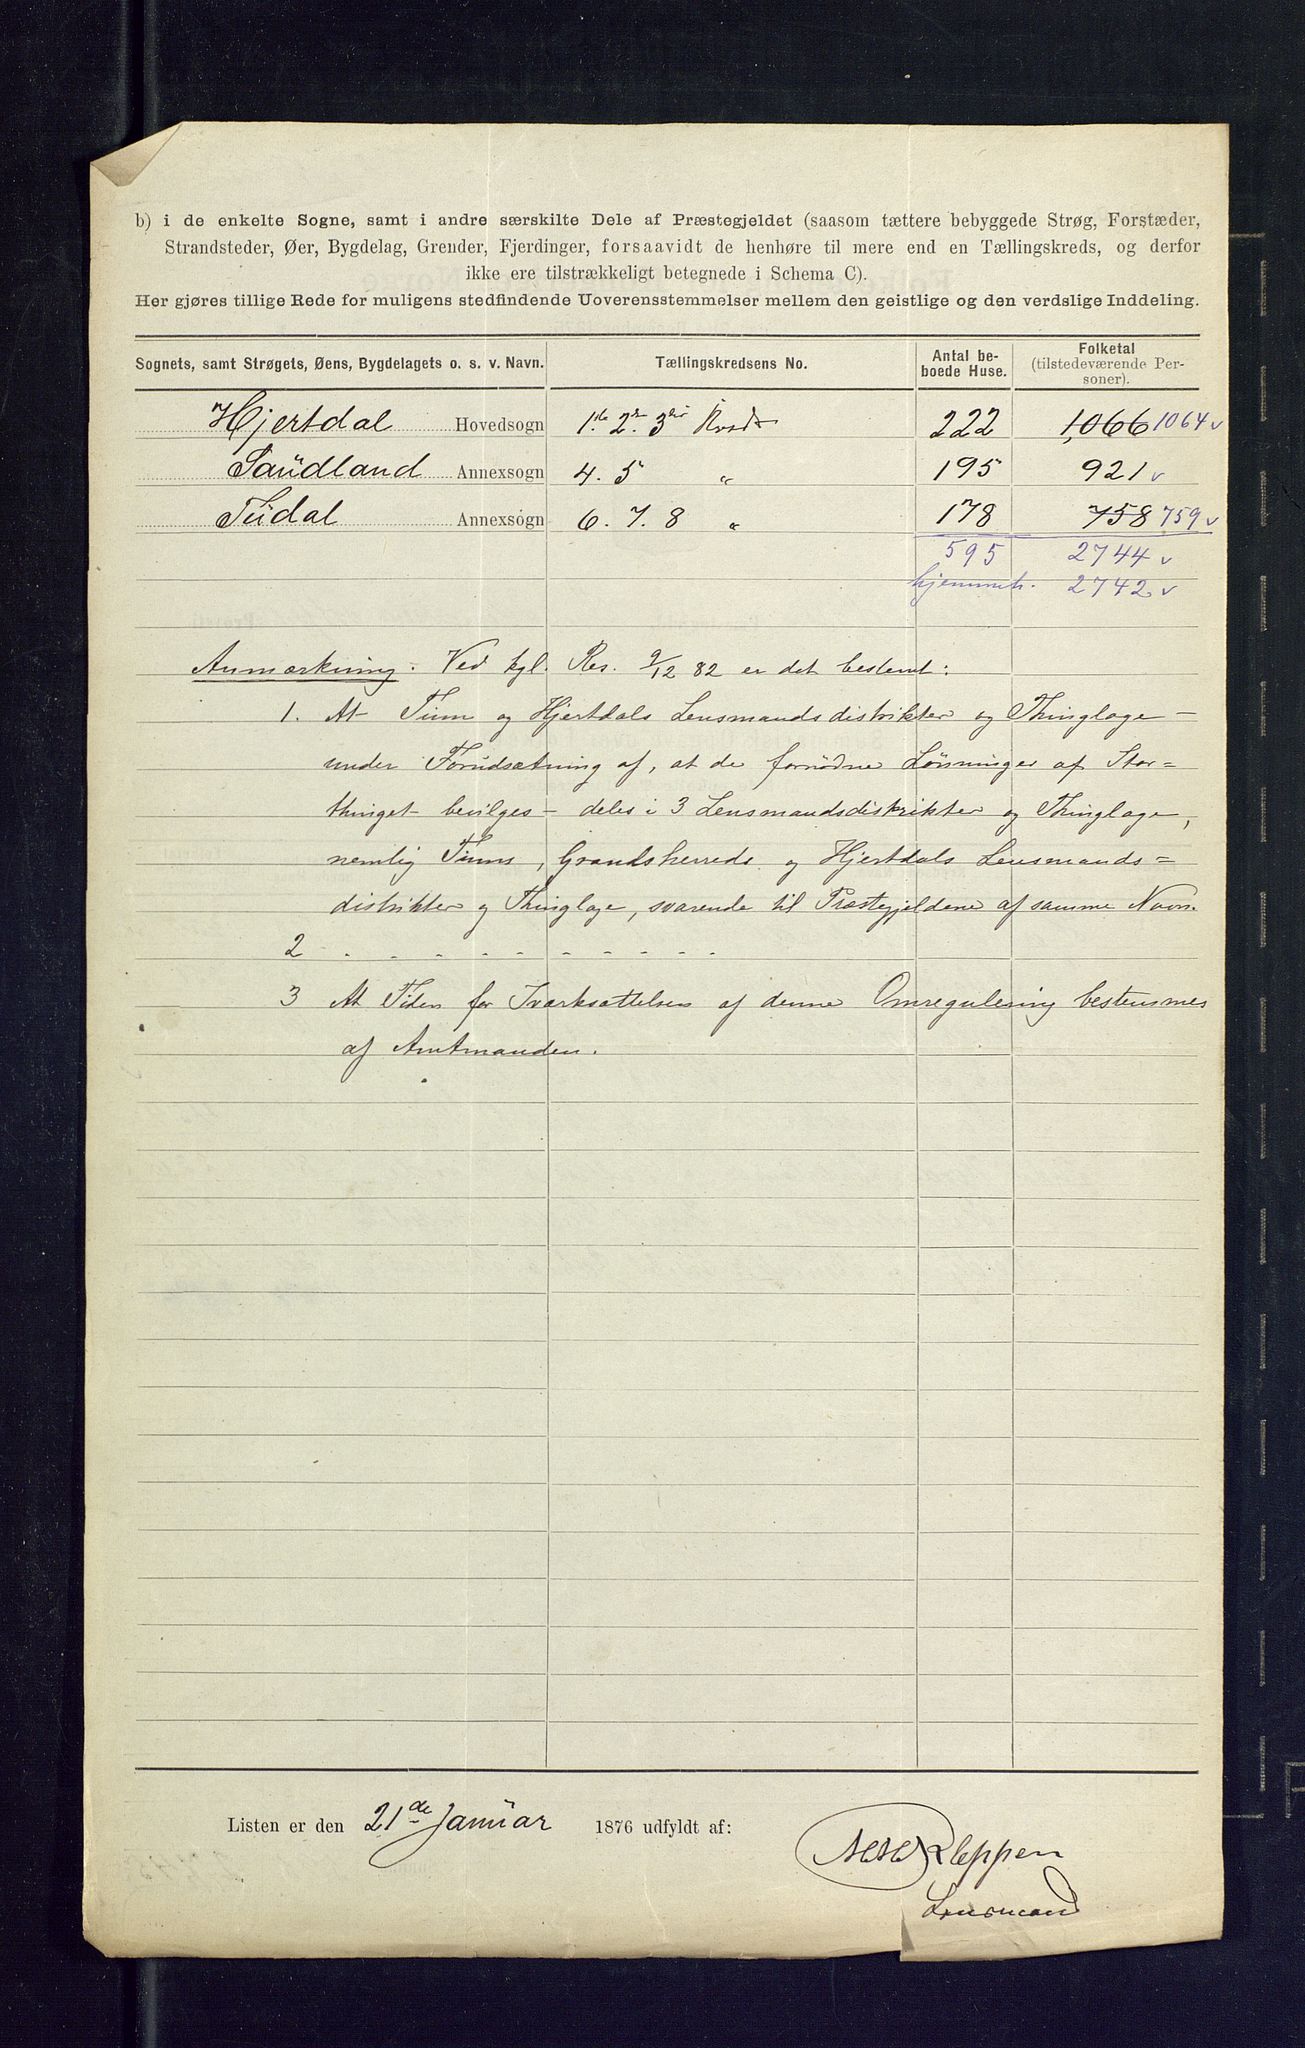 b) i de enkelte Sogne, samt i andre særskilte Dele af Præstegjeldet (saasom tættere bebyggede Strøg, Forstæder,
Strandsteder, Øer, Bygdelag, Grender, Fjerdinger, forsaavidt de henhøre til mere end en Tællingskreds, og derfor
ikke ere tilstrækkeligt betegnede i Schema C).
Her gjøres tillige Rede for muligens stedfindende Uoverensstemmelser mellem den geistlige og den verdslige Inddeling.
Sognets, samt Strøgets, Øens, Bygdelagets o. s. v. Navn. Tællingskredsens No. Antal beboede Huse. Folketal (tilstedeværende Personer).
Hjertdal Hovedsogn 1.de 2.den 3die Kreds 222 1,066 1064 v
Saüdland Annexsogn 4. 5 " 195 921 v
Tüdal Annexsogn 6. 7. 8 " 178 758 759 v
595 2744 v
hjemmeh. 2742 v
Anmærkning. Ved kgl. Res. 9/12 82 er det bestemt:
1. At Tinn og Hjertdals Lensmandsdistrikter og Thinglage –
under Forudsætning af, at de fornødne Lønninger af Stor=
thinget bevilges – deles i 3 Lensmandsdistrikter og Thinglage,
nemlig Tinns, Grandsherreds og Hjertdals Lensmands=
distrikter og Thinglage, svarende til Præstegjeldene af samme Navn.
2 . . - - - - - - - - -
3 At Tiden for Iværksættelsen af denne Omregulering bestemmes
af Amtmanden.
Listen er den 21de Januar 1876 udfyldt af:
Kleppen
Lensmand